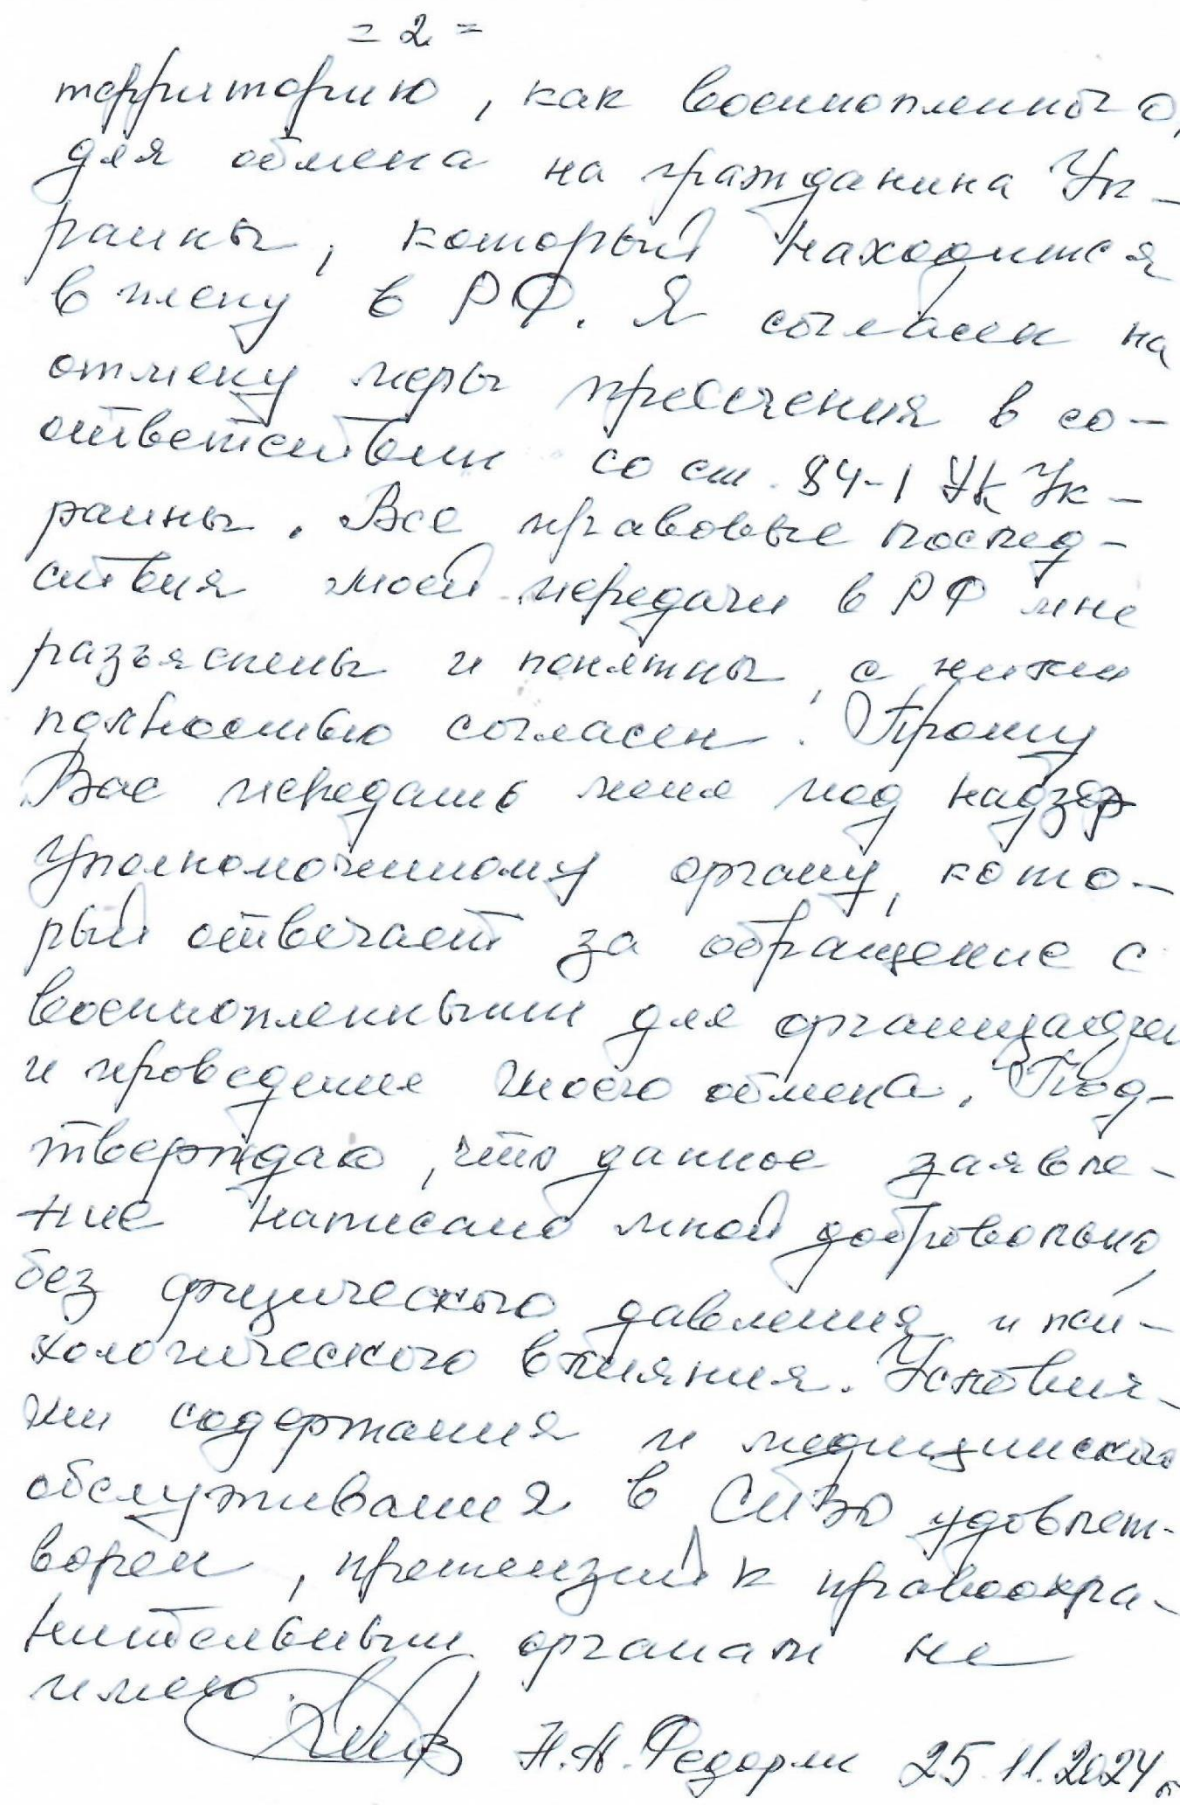 = 2 =
территорию, как военнопленного,
для обмена на гражданина Ук-
раины, который находится
в плену в РФ. Я согласен на
отмену меры пресечения в со-
ответствии со ст. 84-1 УК Ук-
раины. Все правовые послед-
ствия моей передачи в РФ мне
разъяснены и понятны, с ними
полностью согласен. Прошу
Вас передать меня под надзор
Уполномоченному органу, кото-
рый отвечает за обращение с
военнопленными для организации
и проведения моего обмена. Под-
тверждаю, что данное заявле-
ние написано мной добровольно,
без физического давления и пси-
хологического влияния. Условия-
ми содержания и медицинского
обслуживания в СИЗО удовлет-
ворен, претензий к правоохра-
нительным органам не
имею.
Федорян 25.11.2024 г